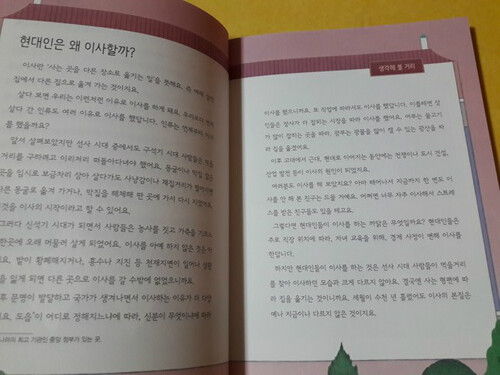 현대인은 왜 이사할까?
이사란 '사는 곳을 다른 장소로 옮기는 일'을 뜻해요. 즉 여태 살던
집에서 다른 집으로 옮겨 가는 것이지요.
살다 보면 우리는 이런저런 이유로 이사를 하게 돼요. 우리보다 먼저
살다 간 인류도 여러 이유로 이사를 했답니다. 인류는 언제부터 이사
를 했을까요?
앞서 살펴보았지만 선사 시대 중에서도 구석기 시대 사람들은 먹을
거리를 구하려고 이리저리 떠돌아다녀야 했어요. 동굴이나 막집
곳을 일시로 보금자리 삼아 살다가도 사냥감이나 채집거리가 떨어지면
다른 동굴로 옮겨 가거나, 막집을 해체해 딴 곳에 가서 다시 지었어요.
것을 이사의 시작이라고 할 수 있어요.
그러다 신석기 시대가 되면서 사람들은 농사를 짓고 가축을 기르느
한곳에 오래 머물러 살게 되었어요. 이사를 아예 하지 않은 것은 아니
요. 밭이 황폐해지거나, 홍수나 지진 등 천재지변이 일어나 생활
을 잃게 되면 다른 곳으로 이사를 갈 수밖에 없었으니까요.
후 문명이 발달하고 국가가 생겨나면서 이사하는 이유가 더 다양
요. 도읍이 어디로 정해지느냐에 따라, 신분이 무엇이냐에 따라
나라의 최고 기관인 중앙 정부가 있는 곳.
생각의 꽃 거리
이사를 했으니까요. 또 직업에 따라서도 이사를 했답니다. 이를테면 상
인들은 장사가 더 잘되는 시장을 따라 이사를 했어요. 어부는 물고기
가 많이 잡히는 곳을 따라, 광부는 광물을 많이 캘 수 있는 광산을 따
라 집을 옮겼어요.
이후 고대에서 근대, 현대로 이어지는 동안에는 전쟁이나 도시 건설,
산업 발전 등이 이사의 원인이 되었지요.
여러분도 이사를 해 보았지요? 아마 태어나서 지금까지 한 번도 이
사를 안 해 본 친구는 드물 거예요. 어쩌면 너무 자주 이사해서 스트레
스를 받은 친구들도 있을 테고요.
그렇다면 현대인들이 이사를 하는 까닭은 무엇일까요? 현대인들은
주로 직장 위치에 따라, 자녀 교육을 위해, 경제 사정이 변해 이사를
한답니다.
하지만 현대인들이 이사를 하는 것은 선사 시대 사람들이 먹을거리
를 찾아 이사하던 모습과 크게 다르지 않아요. 결국엔 사는 형편에 따
라 집을 옮기는 것이니까요. 세월이 수천 년 흘렀어도 이사의 본질은
예나 지금이나 다르지 않은 것이지요.